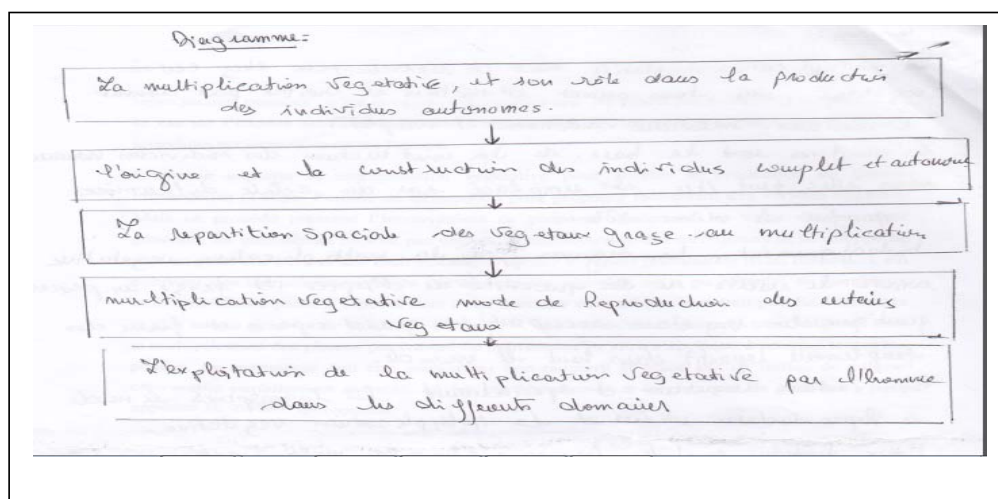 Diagramme=
La multiplication vegetative, et son rôle dans la production
des individus autonomes.
l'origine et la construction des individus complet et autonome
La repartition Spaciale des vegetaux grase au multiplication
multiplication vegetative mode de Reproduction des
Vegetaux
L'exploitation de la multiplication vegetative par l'homme
dans les differents domaines